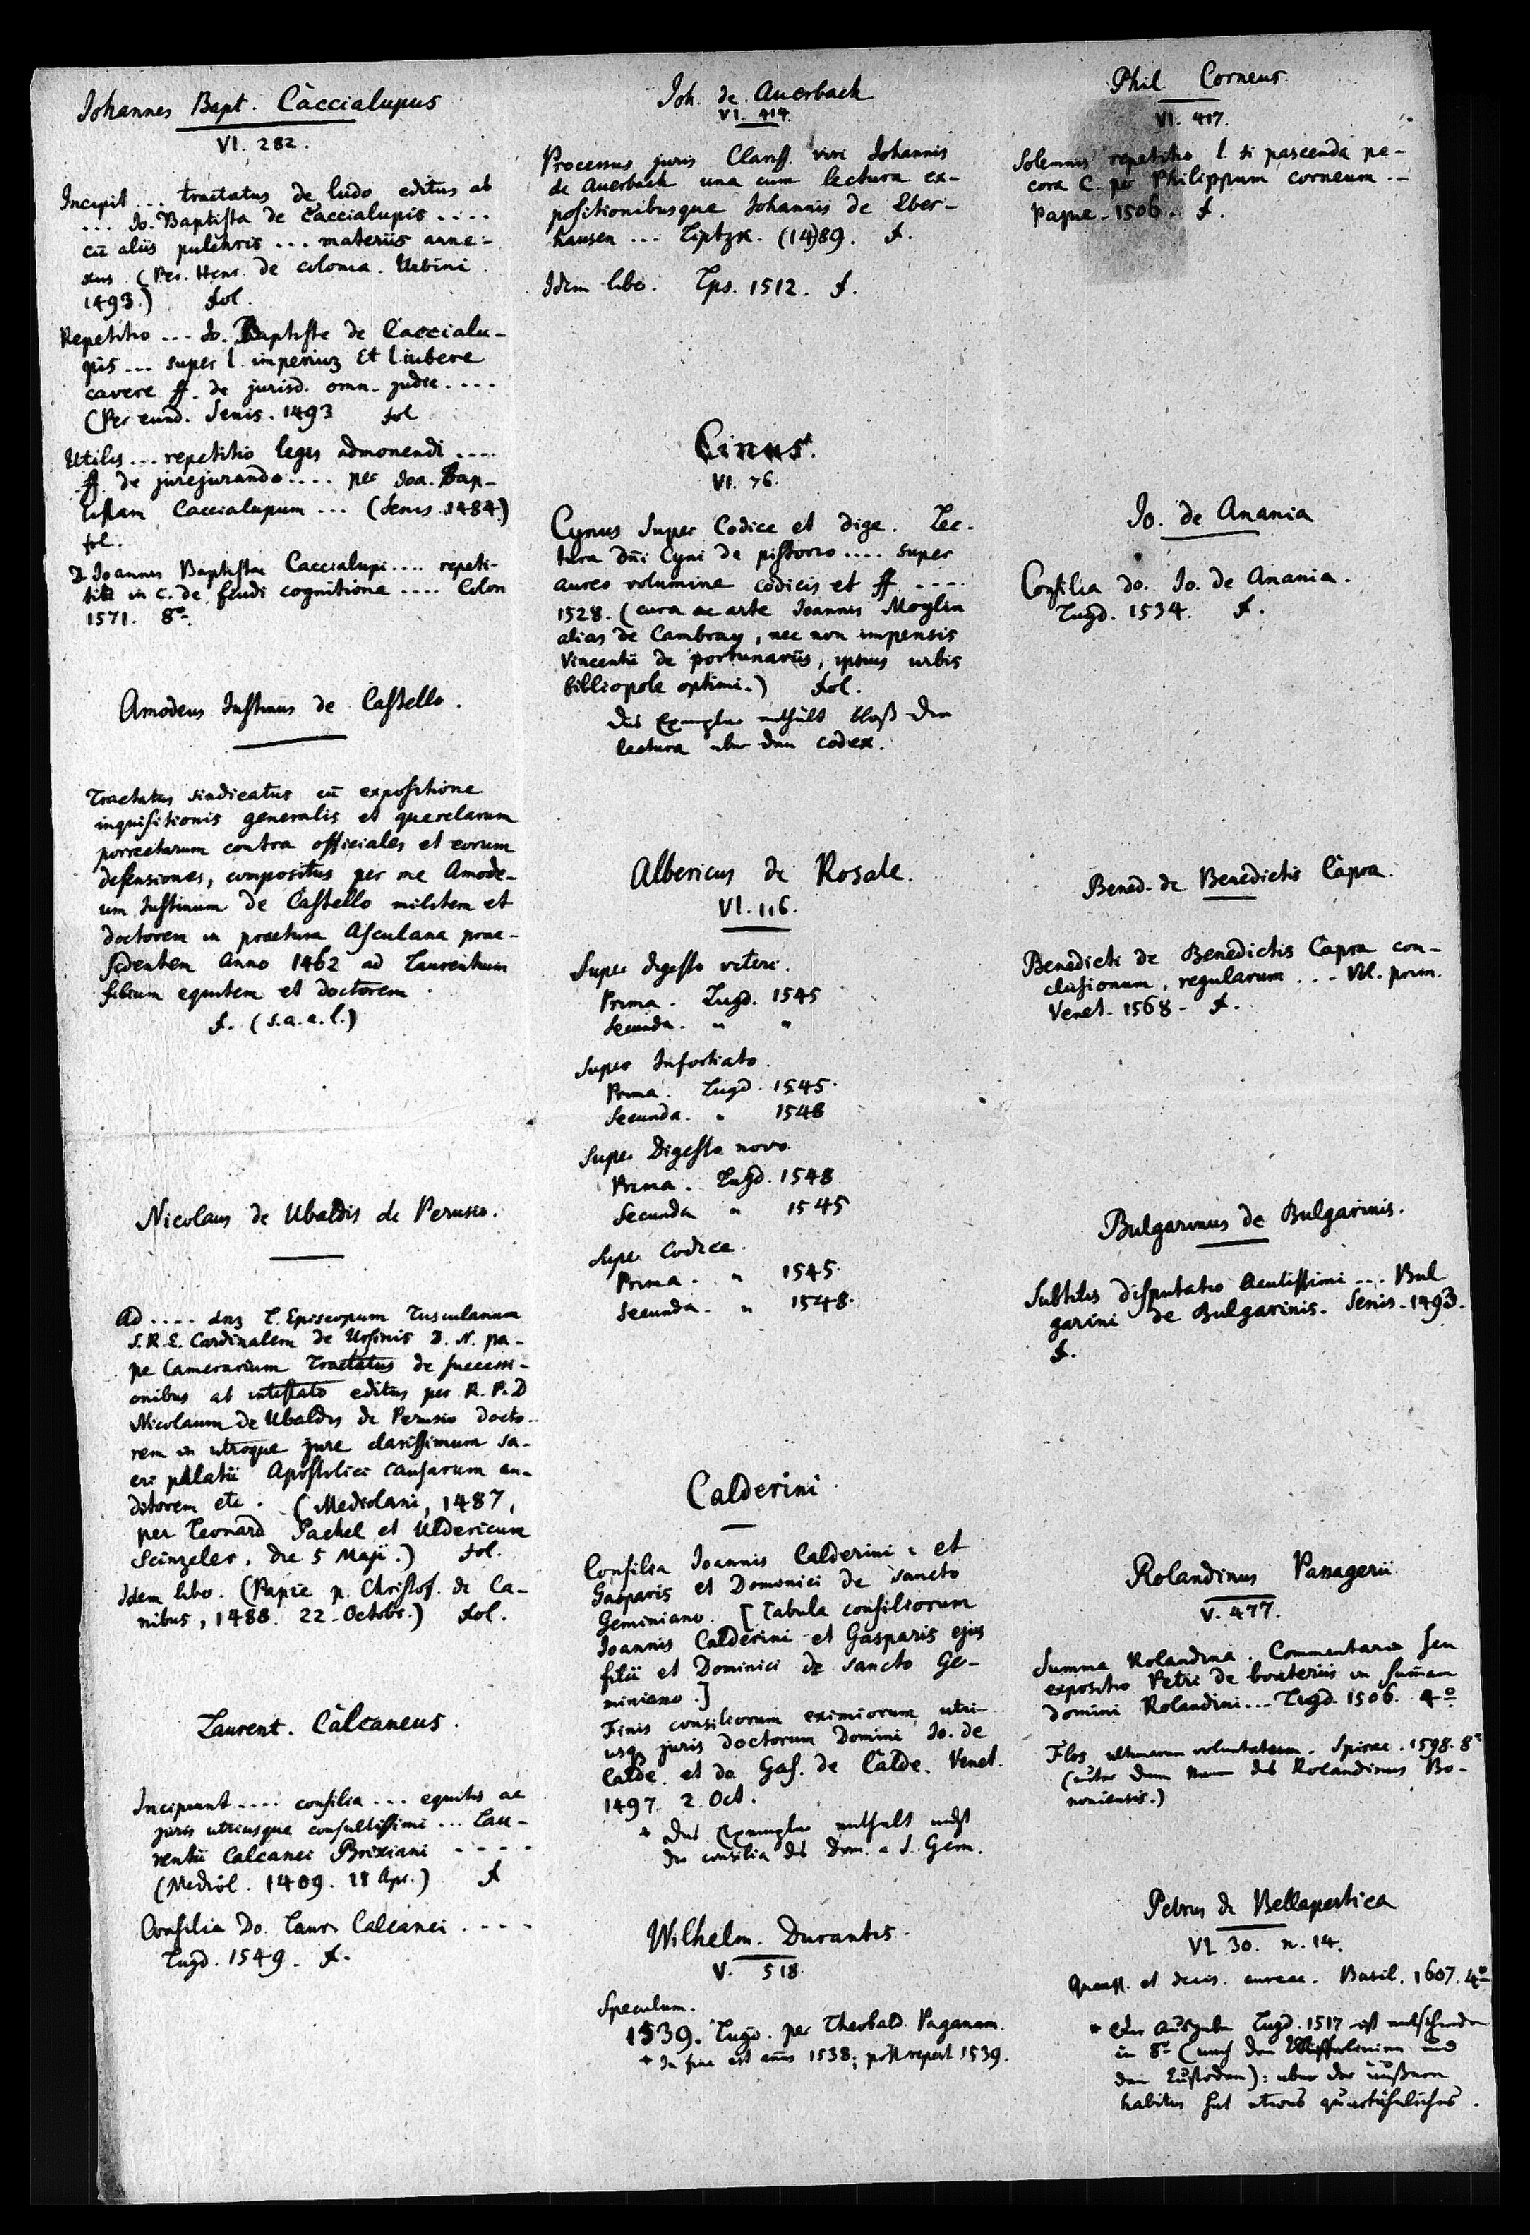 Johannes Bapt. Caccialupus
VI. 282.
Incipit ... tractatus de ludo editus ab
... Jo. Baptista de Caccialupis ....
cū aliis pulchris ... materiis anne-
xus. (Per. Henr. de colonia. Urbini
1493.) fol.
Repetitio --- Jo. Baptiste de Caccialu-
pis --- super l. imperiuz Et l. iubere
cavere ff. de jurisd. omn. judic. ....
(Per eund. Senis. 1493 fol
Utilis --- repetitio leges admonendi ....
ff. de jurejurando .... per Joa. Bap-
tistam Caccialupum ... (Senis. 1484.)
fol.
Joannis Baptistae Caccialupi .... repeti-
in c. de feudi cognitione .... Colon
1571. 8º.
Amodeus Justinus de Castello.
Tractatus sindicatus cū expositione
inquisitionis generalis et querelarum
porrectarum contra officiales et eorum
defensiones, compositus per me Amode-
um Justinum de Castello militem et
doctorem in praetura Asculana prae-
sidentem Anno 1462 ad Laurentium
filium equitem et doctorem.
f. (s.a.e.l.)
Nicolaus de Ubaldis de Perusio.
Ad .... dnz L. Episcopum Tusculanum
S.R.E. Cardinalem de Ursinis D. N. pa-
pe Camerarium Tractatus de successi-
onibus ab intestato editus per R. P. D
Nicolaum de Ubaldis de Perusio docto-
rem in utroque jure clarissimum sa-
cri palatii Apostolici causarum au-
ditorem etc. (Mediolani, 1487,
per Leonard Pachel et Uldericum
Scinzeler, die 5 Maji.) fol.
Idem libr. (Papie p. Christof. de Ca-
nibus, 1488. 22. Octobr.) fol.
Laurent. Calcaneus.
Incipiunt .... consilia ... equitis ac
juris utriusque consultissimi ... Lau-
rentii Calcanei Brixiani - - - -
(Mediol. 1409. 28 Apr.) f
Consilia Do. Laur. Calcanei . - - -
Lugd. 1549. f.
Joh. de Auerbach
VI. 414.
Processus juris Clariss. viri Johannis
de Auerbach una cum lectura ex-
positionibusque Johannis de Eber-
hausen ... Liptzk. (14)89. f.
Idem libr. Lps. 1512. f.
Cinus.
VI. 76.
Cynus Super Codice et dige. Lec-
tura dñi Cyni de pistorio .... super
aureo volumine codicis et ff ....
1528. (cura ac arte Joannis Moylin
alias de Cambray, nec non impensis
Vincentii de portunariis, ipsius urbis
bibliopole optimi.) fol.
Das Exemplar enthält bloß die
lectura über den codex.
Albericus de Rosate.
VI. 116.
Super digesto veteri.
Prima. Lugd. 1545
Secunda. " "
Super Infortiato
Prima. Lugd. 1545.
Secunda. " 1548
Super Digesto novo.
Prima. Lugd. 1548
Secunda " 1545
Super Codice.
Prima. " 1545.
Secunda. " 1548.
Calderini.
Consilia Joannis Calderini : et
Gasparis et Dominici de sancto
Geminiano. [Tabula consiliorum
Joannis Calderini et Gasparis ejus
filii et Dominici de sancto Ge-
miniano.]
Finis consiliorum eximiorum utri-
usq. juris doctorum Domini Jo. de
Calde. et do. Gas. de Calde. Venet.
1497. 2. Oct.
* Das Exemplar enthält nicht
die consilia des Dom. a S. Gem.
Wilhelm. Durantis.
V. 518.
Speculum.
1539. Lugd. per Theobald. Paganum.
* In fine est anns 1538; post repert 1539.
Phil Corneus
VI. 417.
Solemnis repetitio l. si pascenda pe-
cora C. per Philippum corneum ...
Papie. 1506. f.
Jo. de Anania
Consilia do. Jo. de Anania.
Lugd. 1534. f.
Bened. de Benedictis Capra.
Benedicti de Benedictis Capra con-
clusionum, regularum ... Vol. prim.
Venet. 1568. f.
Bulgarinus de Bulgarinis.
Subtilis disputatio Acutissimi ... Bul
garini de Bulgarinis. Senis. 1493.
f.
Rolandinus Passagerii
V. 477.
Summa Rolandina. Commentaria seu
expositio Petri de boateriis in summam
domini Rolandini... Lugd. 1506. 4º
Flos ultimarum voluntatum. Spirae. 1598. 8º
(unter dem Namen des Rolandinus Bo-
noniensis.)
Petrus de Bellapertica
VI. 30. n. 14.
Quaest. et decis. aureae. Basil. 1607. 4º
* Die Ausgabe Lugd. 1517 ist entschieden
in 8º (nach den und
den Custoden): aber der äußere
habitus hat etwas quartähnliches.